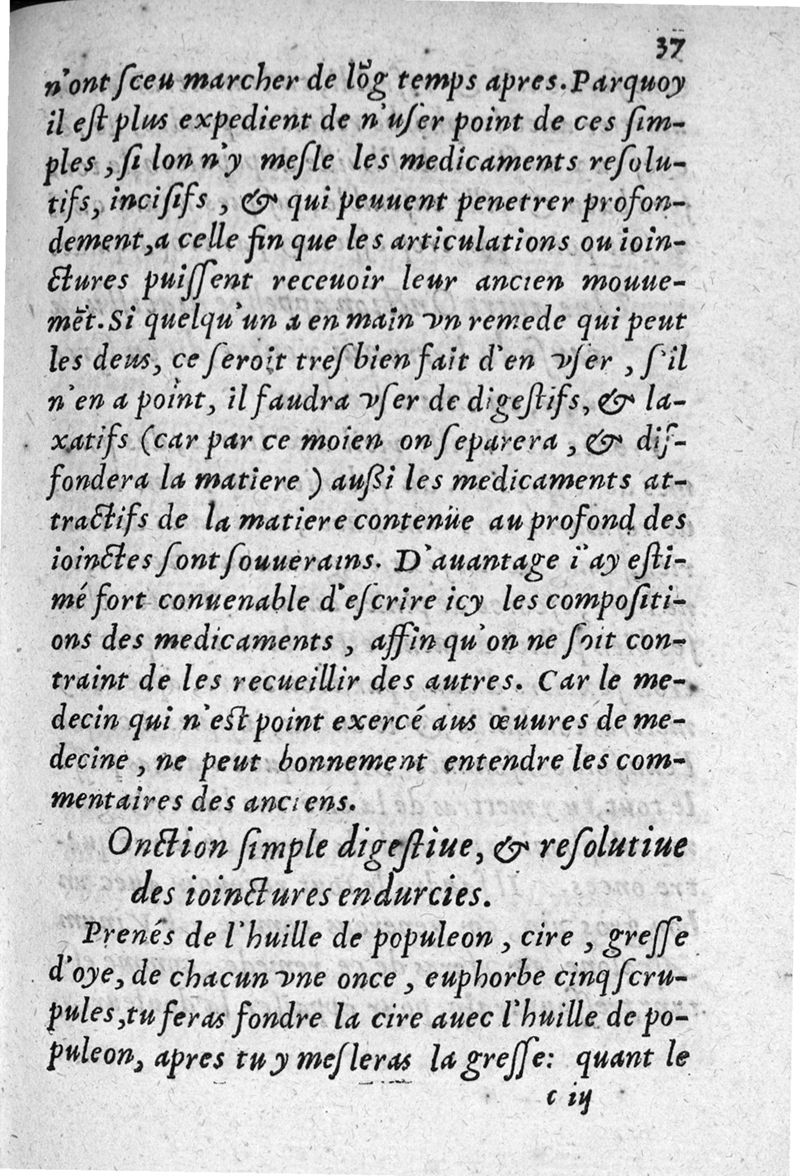 37
n'ont ſceu marcher de lõg temps apres. Parquoy
il eſt plus expedient de n'uſer point de ces ſim-
ples, ſi lon n'y meſle les medicaments reſolu-
tifs, inciſifs, & qui peuuent penetrer profon-
dement, a celle fin que les articulations ou ioin-
ctures puiſſent receuoir leur ancien mouue-
mẽt. Si quelqu'un a en main vn remede qui peut
les deus, ce ſeroit treſbien fait d'en vſer, ſ'il
n'en a point, il faudra vſer de digeſtifs, & la-
xatifs (car par ce moien on ſeparera, & diſ-
fondera la matiere) außi les medicaments at-
tractifs de la matiere contenüe au profond des
ioinctes ſont ſouuerains. D'auantage i'ay eſti-
mé fort conuenable d'eſcrire icy les compoſiti-
ons des medicaments, affin qu'on ne ſoit con-
traint de les recueillir des autres. Car le me-
decin qui n'eſt point exercé aus œuures de me-
decine, ne peut bonnement entendre les com-
mentaires des anciens.
Onction ſimple digeſtiue, & reſolutiue
des ioinctures endurcies.
Prenés de l'huille de populeon, cire, greſſe
d'oye, de chacun vne once, euphorbe cinq ſcru-
pules, tu feras fondre la cire auec l'huille de po-
puleon, apres tu y meſleras la greſſe: quant le
c iij